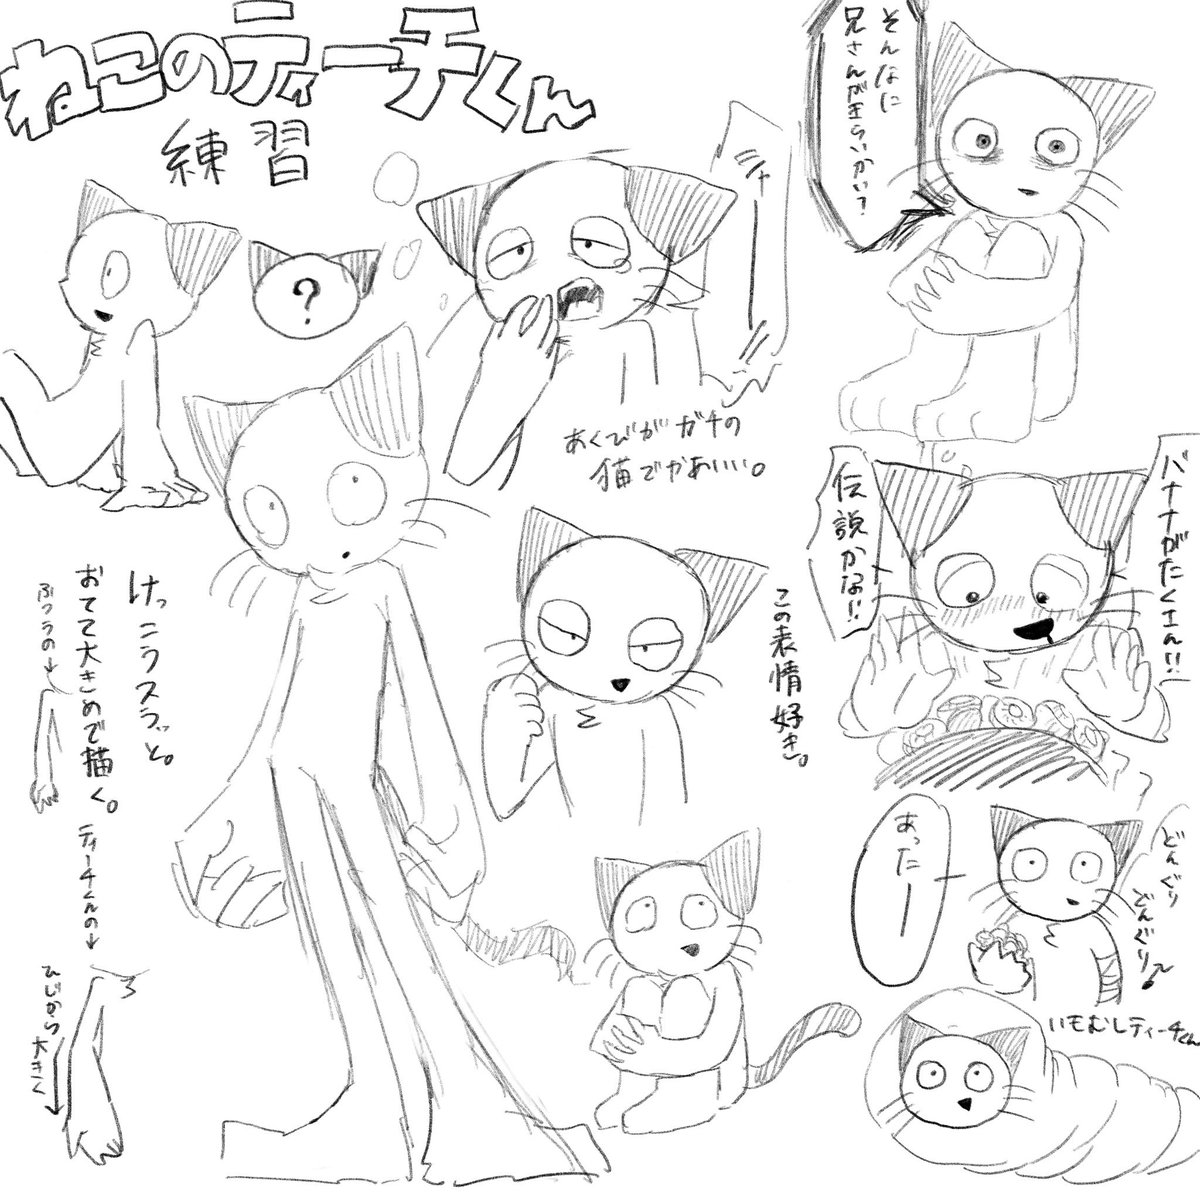 ねこのティーチくん
練習
そんなに
兄さんがエらいかい?
?
あくびがガチの
猫でかあいい。
バナナがたくエん!!
伝説かな!!
この表情好き。
けっこうスラッと。
おてて大きめで描く。
ふつうの→
ティーチくんの→
ひじから大きく
あったー
どんぐり
どんぐり♪
いもむしティーチくん